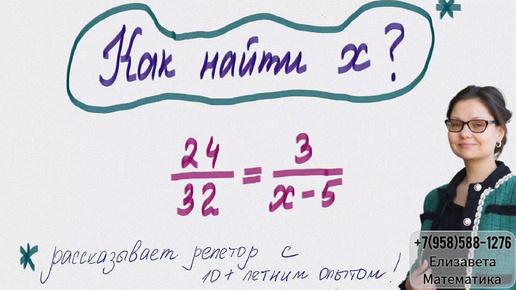 Как найти x?
24/32 = 3/x-5
* рассказывает репетор с
10+ летним опытом!
+7(958)588-1276
Елизавета
Математика